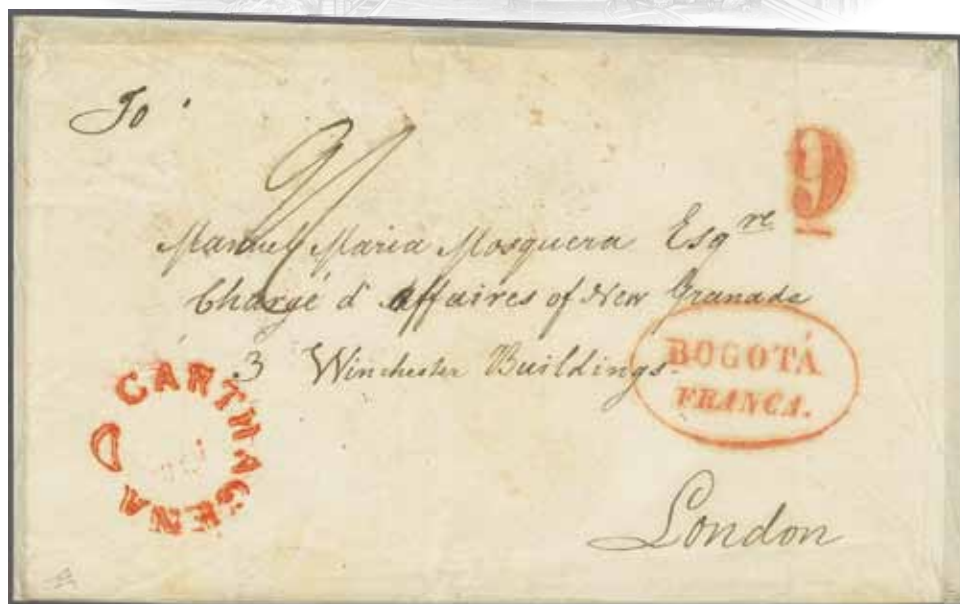 To
9
Manuel Maria Mosquera Esqre
Chargé d'Affaires of New Granada
3 Winchester Buildings.
BOGOTÁ
FRANCA.
CARTHAGENA
London